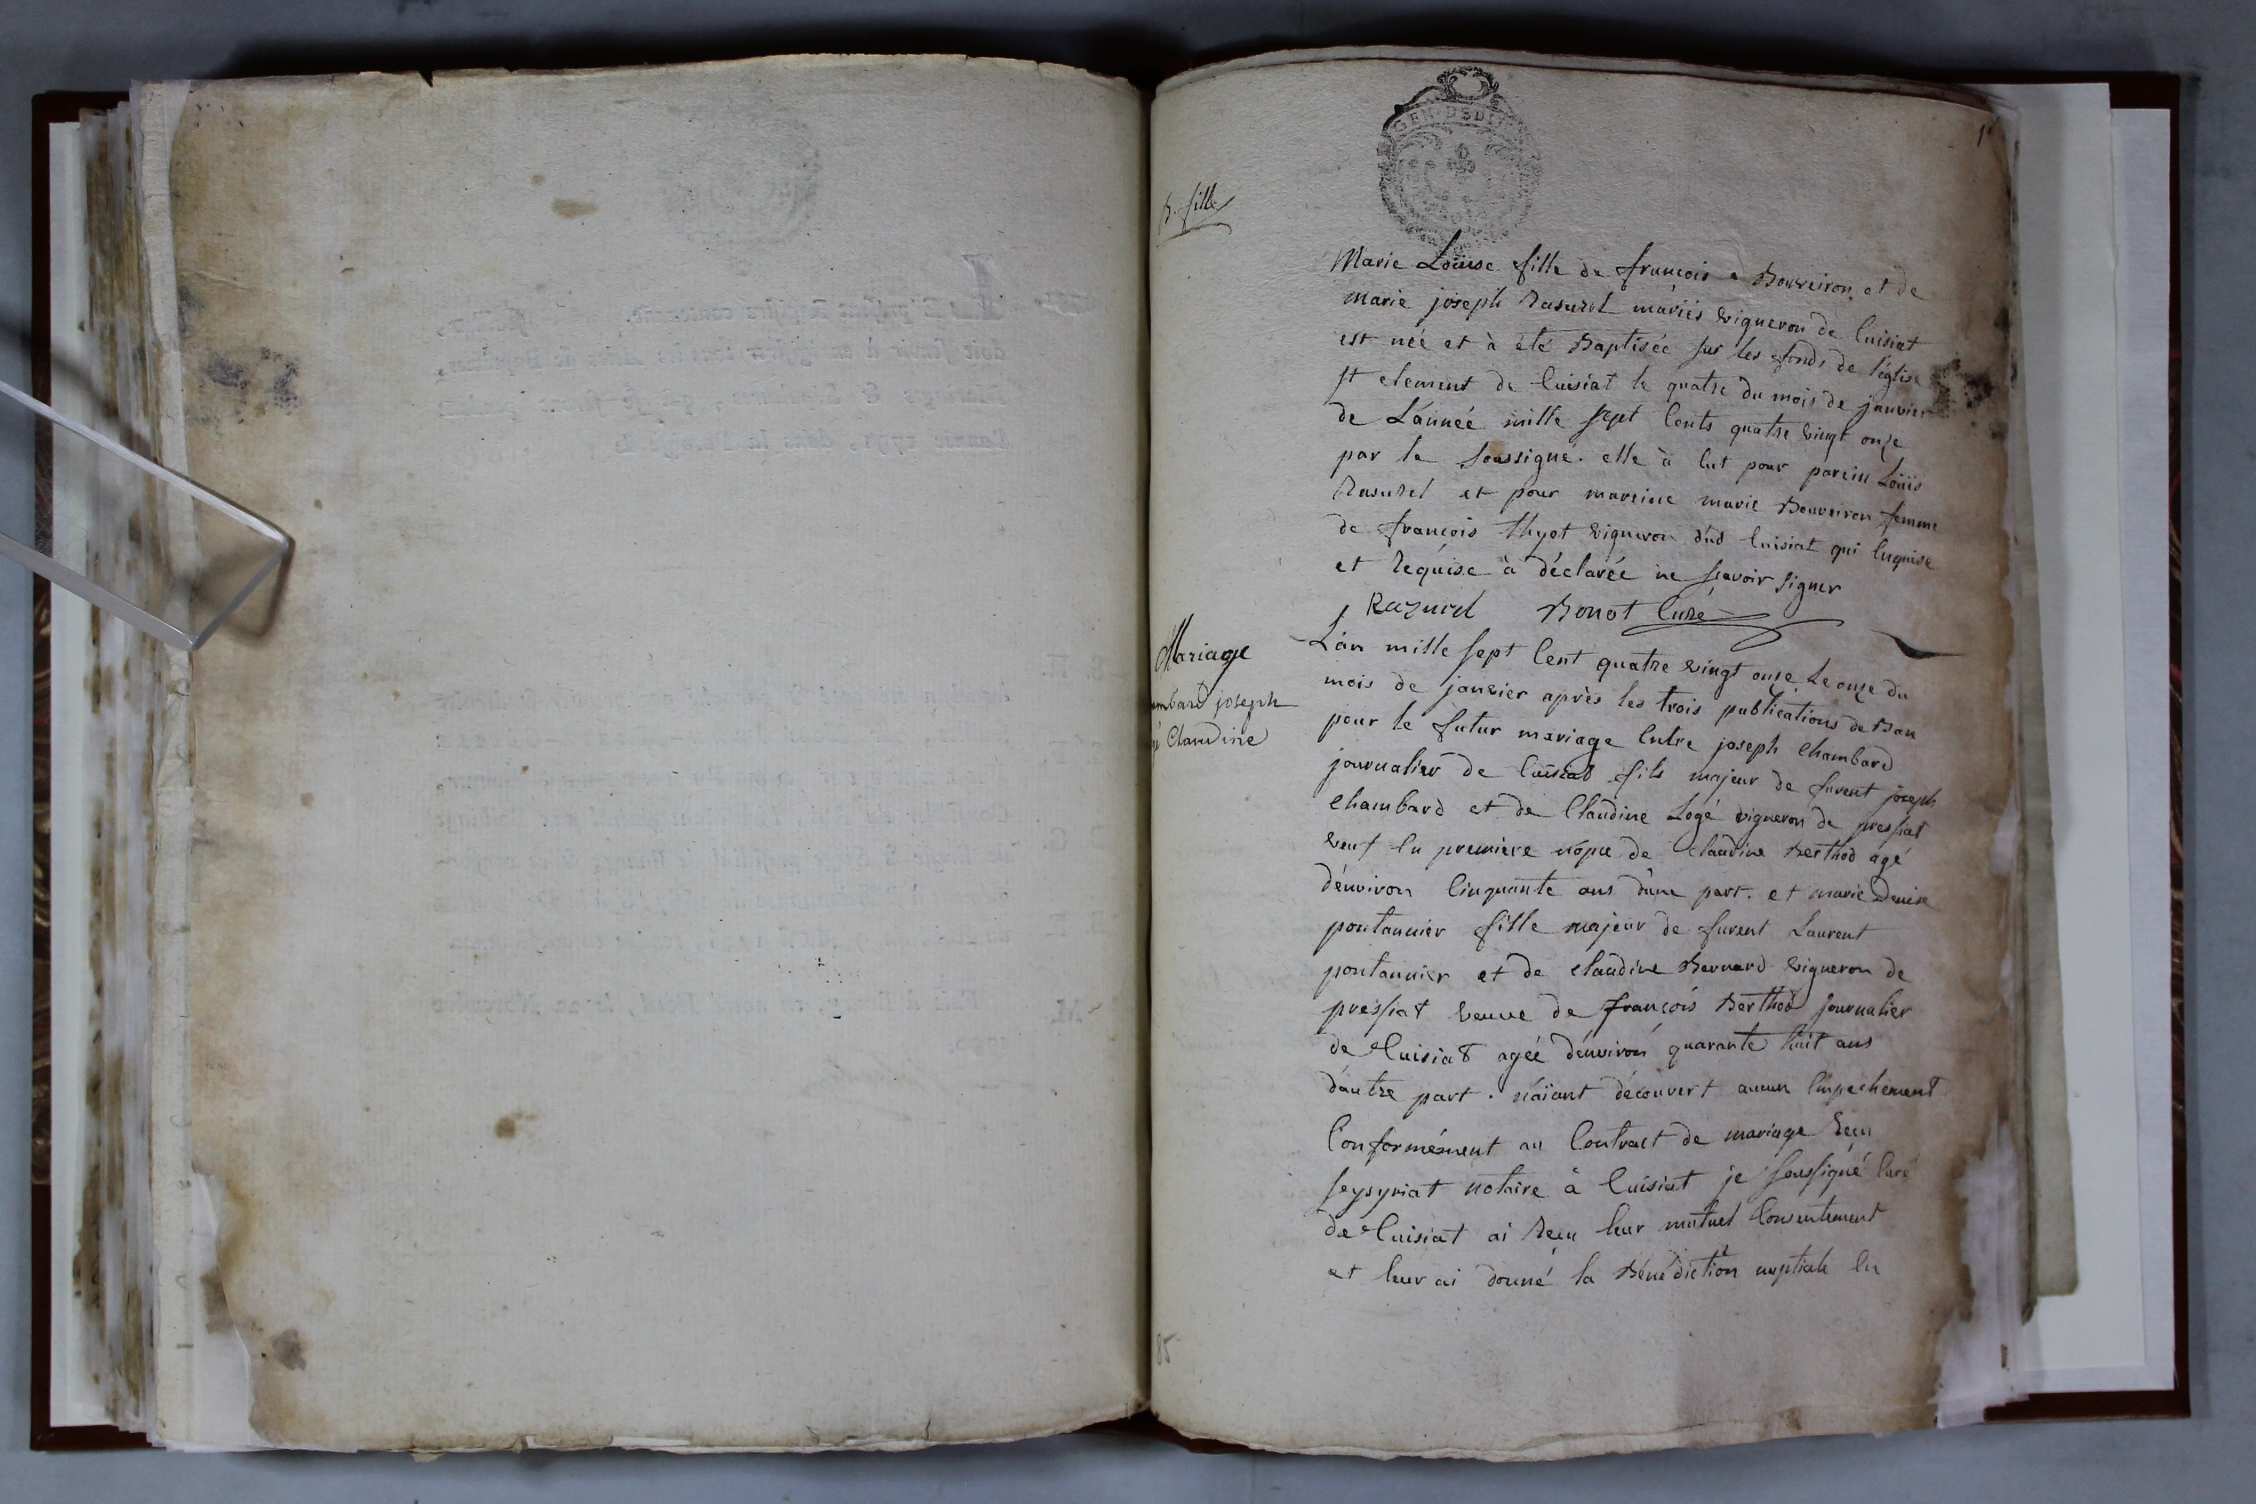 1
B. fille
Marie Loüise fille de francois Bouveiron et de
marie joseph Rasurel mariés vigneron de Cuisiat
est née et à été Baptisée sur les fonds de l'église
st clement de Cuisiat le quatre du mois de janvier
de L'année mille sept Cents quatre vingt onze
par le soussigné. elle à Eut pour parein Loüis
Rasurel et pour mareine marie Bouveiron femme
de francois thyot vigneron dud Cuisiat qui Enquise
et Requise à déclarée ne scavoir signer
Razurel Bonot Curé
Mariage
mbard joseph
Claudine
L'an mille sept Cent quatre vingt onze Le onze du
mois de janvier après les trois publications de Ban
pour le futur mariage Entre joseph Chambard
journalier de Cuisiat fils majeur de furent joseph
Chambard et de Claudine Logé vigneron de pressiat
veuf En premiere nôpce de Claudine Berthod agé
d'environ Cinquante ans d'une part. et marie Denise
pontannier fille majeur de furent Laurent
pontannier et de Claudine Bernard vigneron de
pressiat veuve de francois Berthod journalier
de Cuisiat agée d'environ quarante huit ans
d'autre part. n'aïant découvert aucun Empechement
Conformément au Contract de mariage Recu
seysyriat notaire à Cuisiat je soussigné Curé
de Cuisiat ai Recu leur mutuel Consentement
et leur ai donné la Bénédiction nuptiale En
85